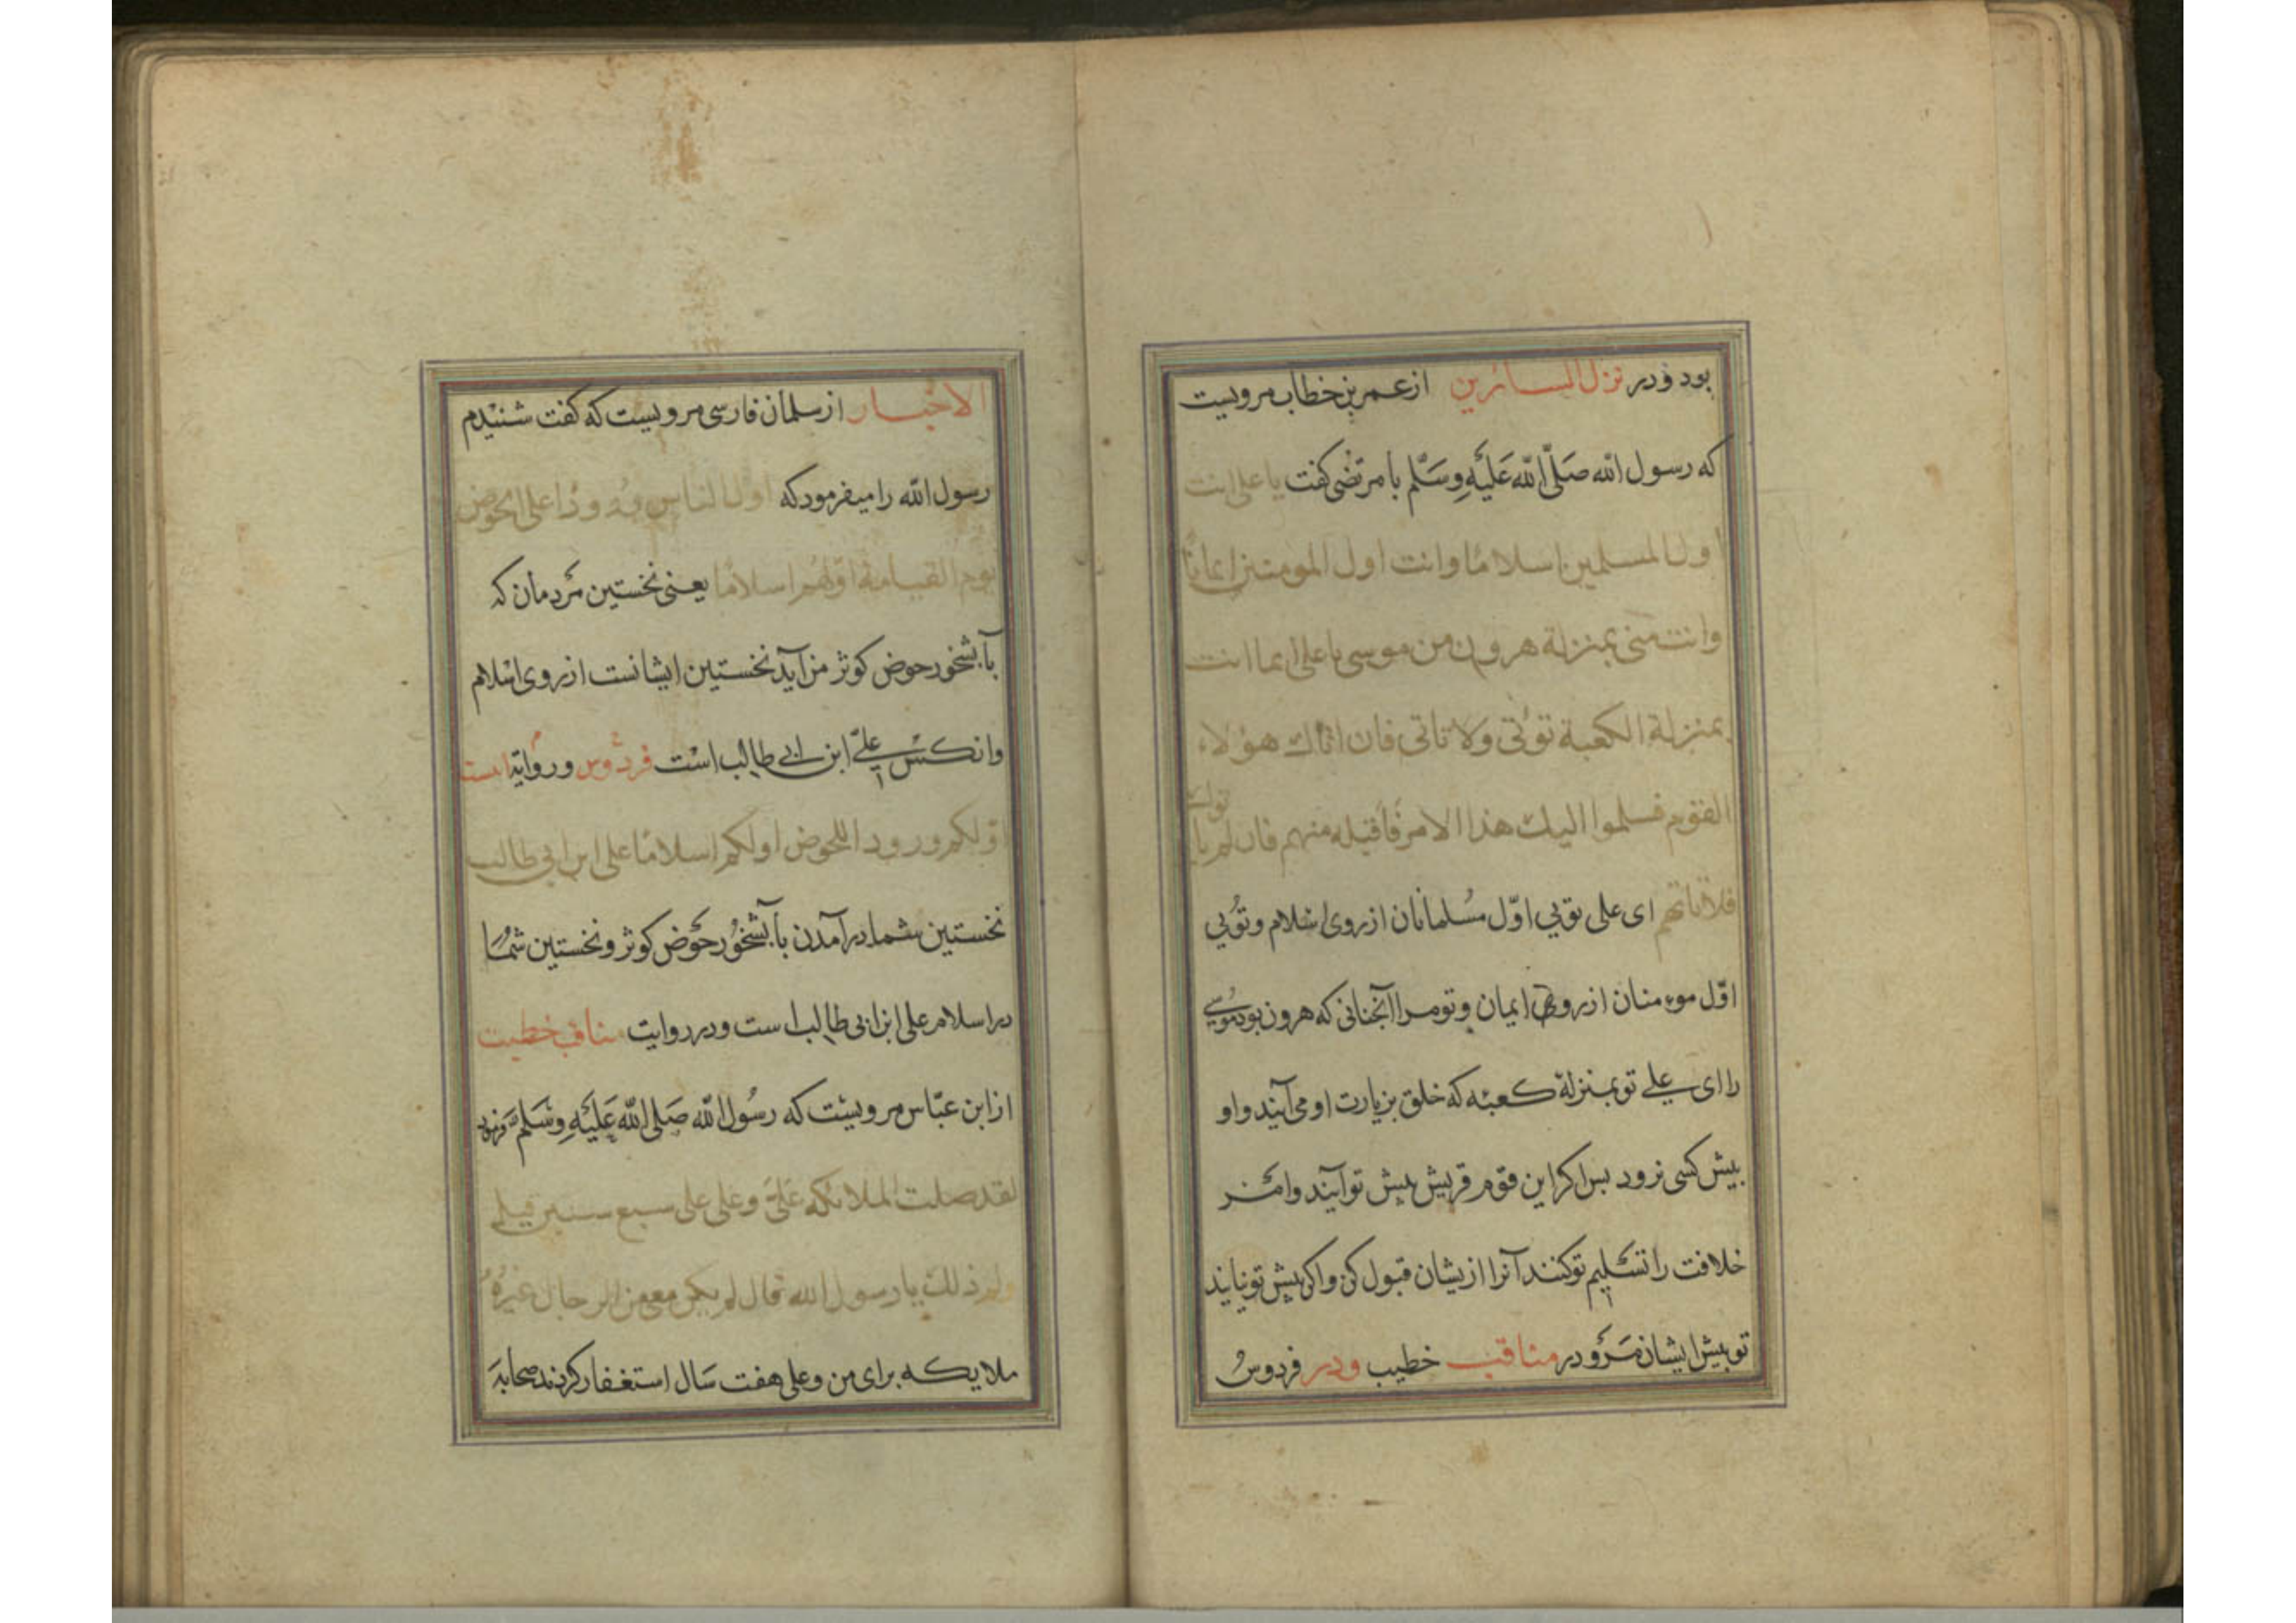 بود و در نزل السائرین از عمر بن خطاب مرویست
که رسول الله صَلَّی الله عَلَیْهِ وَسَلَّم با مرتضی کفت یا علی انت
اول المسلمین اسلامًا وانت اول المومنین ایمانًا
وانت منی بمنزلة هرون من موسی یا علی انما انت
بمنزلة الکعبة تؤتی ولا تاتی فان اتاك هؤلاء
القوم فسلموا الیك هذا الامر فاقبله منهم فان لم یا توك
فلا تاتهم ای علی تویی اوّل مسُلمانان از روی اسْلام وتوُیی
اوّل موءمنان از روی ایمان وتو مرا آنجنانی که هرون بود موُسی
را ای علی تو بمنزلهٔ کعبه که خلق بزیارت او می آیند واو
بیش کسی نرود بس اکر این قوم قریش بیش تو آیند وامَر
خلافت را تسَلیم تو کنند آنرا ازیشان قبول کن واکر بیش تو نایند
تو بیش ایشان مَرَو در مناقب خطیب ودر فردوسُ
الاخبار از سلمان فارسی مرویست که کفت شنیدم
رسول الله را میفرمود که اول الناس ورودًا علی الحوض
یوم القیامة اوّلهُم اسلامًا یعنی نخستین مَردمان که
بآبشخور حوض کوثر من آید نخستین ایشانست از روی اسْلام
وانکسْ علیّ ابن ابی طالب اسْت فردوس وروایة است
اوّلکم ورودا اللحوض اولکم اسلامًا علی ابن ابی طالب
نخستین شما در آمدن بآبشخوُر حوَض کوثر ونخستین شمُا
در اسلام علی ابن ابی طالب است ودر روایت مناقب خطیب
از ابن عبّاس مرویست که رسُول الله صَلی الله عَلَیْهِ وَسَلَّم فرمود
لقد صلت الملائکه عَلیَّ وعلی علی سبع سنین قیل
ولم ذلك یا رسول الله قال لم یکن معی من الرجال غیرهُ
ملایکه برای من وعلی هفت سَال استغفار کردند صحابَه